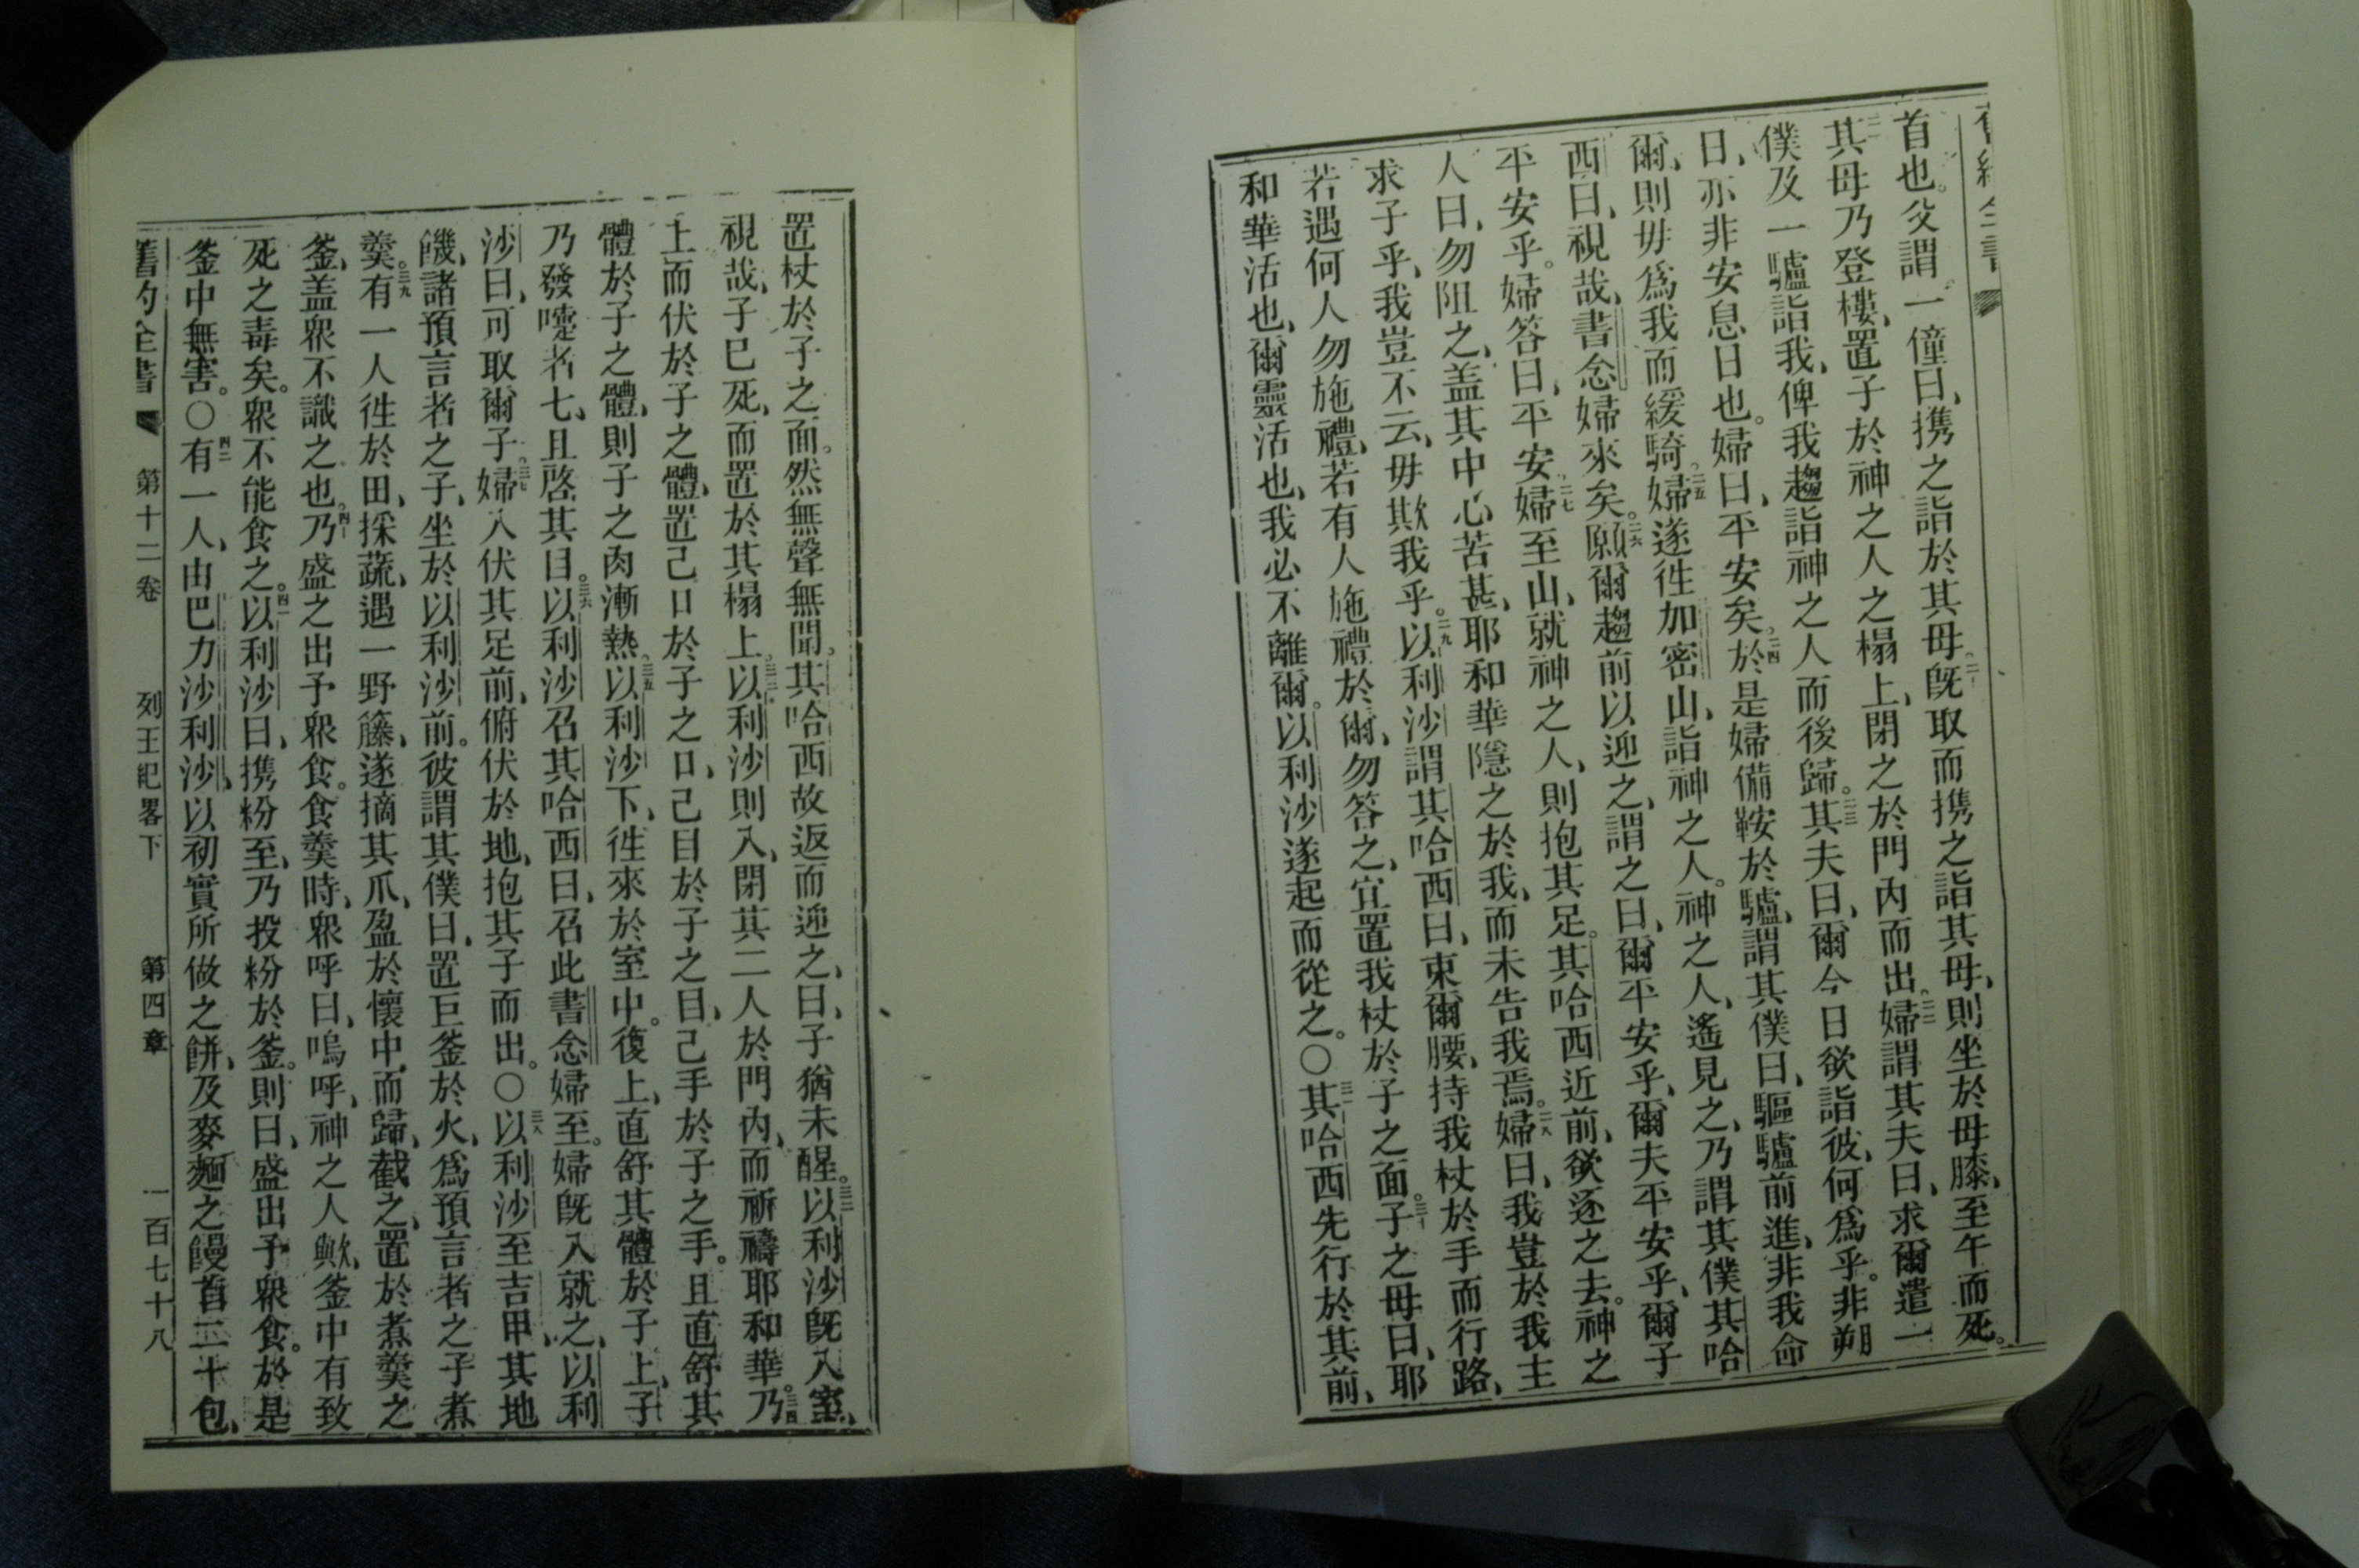 首也。父謂一僮曰、携之詣於其母。二十既取而携之詣其母、則坐於母膝、至午而死。
二一其母乃登樓、置子於神之人之榻上、閉之於門內而出。二二婦謂其夫曰、求爾遣一
僕及一驢詣我、俾我趨詣神之人而後歸。二三其夫曰、爾今日欲詣彼、何爲乎。非朔
日、亦非安息日也。婦曰、平安矣。二四於是婦備鞍於驢、謂其僕曰、驅驢前進、非我命
爾、則毋爲我而緩騎。二五婦遂徃加密山、詣神之人。神之人、遙見之、乃謂其僕其哈
西曰、視哉、書念婦來矣。二六願爾趨前以迎之、謂之曰、爾平安乎、爾夫平安乎、爾子
平安乎。婦答曰、平安。二七婦至山、就神之人、則抱其足。其哈西近前、欲逐之去。神之
人曰、勿阻之、盖其中心苦甚、耶和華隱之於我、而未告我焉。二八婦曰、我豈於我主
求子乎、我豈不云、毋欺我乎。二九以利沙謂其哈西曰、束爾腰、持我杖於手而行路、
若遇何人勿施禮、若有人施禮於爾、勿答之、宜置我杖於子之面。三十子之母曰、耶
和華活也、爾靈活也、我必不離爾。以利沙遂起而從之。〇三一其哈西先行於其前、
置杖於子之面。然無聲無聞。其哈西故返而迎之、曰、子猶未醒。三二以利沙既入室、
視哉、子已死、而置於其榻上。三三以利沙則入、閉其二人於門內、而祈禱耶和華。三四乃
上而伏於子之體、置己口於子之口、己目於子之目、己手於子之手。且直舒其
體於子之體、則子之肉漸熱。三五以利沙下、徃來於室中。復上、直舒其體於子上、子
乃發嚏者七、且啓其目。三六以利沙召其哈西曰、召此書念婦至。婦既入就之、以利
沙曰、可取爾子。三七婦入伏其足前、俯伏於地、抱其子而出。〇三八以利沙至吉甲、其地
饑、諸預言者之子、坐於以利沙前。彼謂其僕曰、置巨釜於火、爲預言者之子煮
羮。三九有一人徃於田、採蔬、遇一野籐、遂摘其爪、盈於懷中、而歸、截之、置於煮羮之
釜、盖衆不識之也。四十乃盛之出予衆食。食羮時、衆呼曰、嗚呼、神之人歟、釜中有致
死之毒矣。衆不能食之。四一以利沙曰、携粉至、乃投粉於釜。則曰、盛出予衆食。於是
釜中無害。〇四二有一人、由巴力沙利沙、以初實所做之餅、及麥麵之饅首二十包、
舊約全書 第十二卷 列王紀畧下 第四章 一百七十八